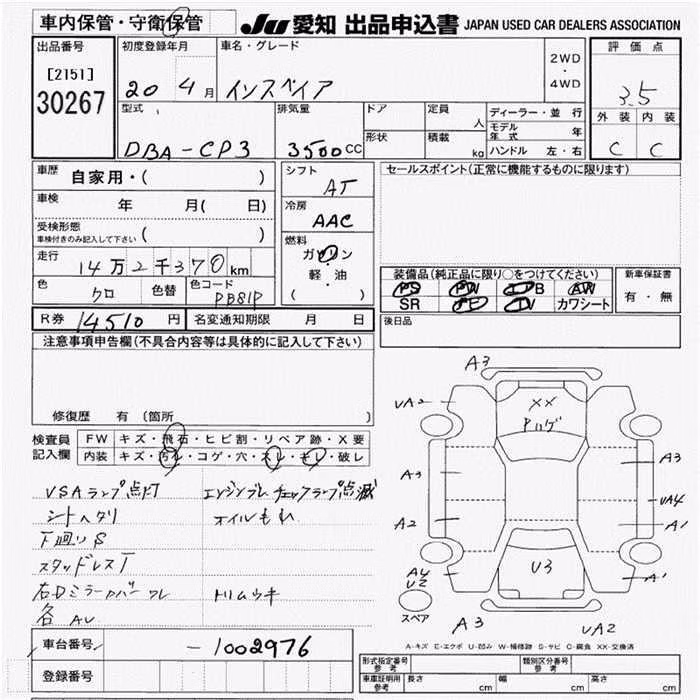 車内保管・守衛保管
JU 愛知 出品申込書 JAPAN USED CAR DEALERS ASSOCIATION
出品番号
[2151]
30267
初度登録年月
20 4月
車名・グレード
インスペイア
2WD
・
4WD
評価点
3.5
外装 内装
C C
型式
DBA-CP3
排気量
3500CC
ドア
形状
定員
人
積載
kg
ディーラー・並行
モデル年式 年
ハンドル 左・右
車歴
自家用・( )
車検
年 月( 日)
受検形態
車検付きのみ記入して下さい ( )
走行
14万2千370km
色
クロ
色替
色コード
PB81P
シフト
AT
冷房
AAC
燃料
ガソリン
軽・油
( )
セールスポイント(正常に機能するものに限ります)
装備品(純正品に限り○をつけてください)
PS PW エアB AW
SR ナビ TV カワシート
新車保証書
有・無
R券 14510円
名変通知期限 月 日
後日品
注意事項申告欄(不具合内容等は具体的に記入して下さい)
修復歴 有(箇所 )
検査員
記入欄
FW キズ・飛石・ヒビ割・リペア跡・X要
内装 キズ・汚れ・コゲ・穴・スレ・キレ・破レ
VSAランプ点灯
エンジンブレ チェックランプ点滅
シートヘタリ
オイルもれ
下廻りS
スタッドレスT
右Dミラーカバーワレ
トリムウキ
各AU
車台番号
-1002976
登録番号
A3
UA2
XX
Pハゲ
A3
A3
UA4
A2
A1
A4
U2
U3
A1
スペア
A3
UA2
A-キズ E-エクボ U-凹み W-補修跡 S-サビ C-腐食 XX-交換済
形式指定番号
参考
類別区分番号
参考
車庫証明用
参考
長さ cm
幅 cm
高さ cm